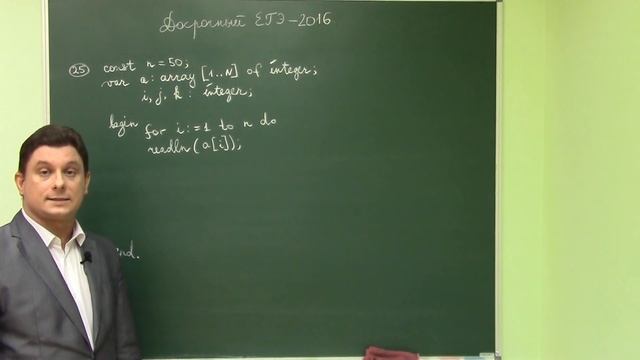 Досрочный ЕГЭ-2016.
25 const n = 50;
var a: array [1..N] of integer;
i, j, k : integer;
begin
for i:=1 to n do
readln(a[i]);
end.